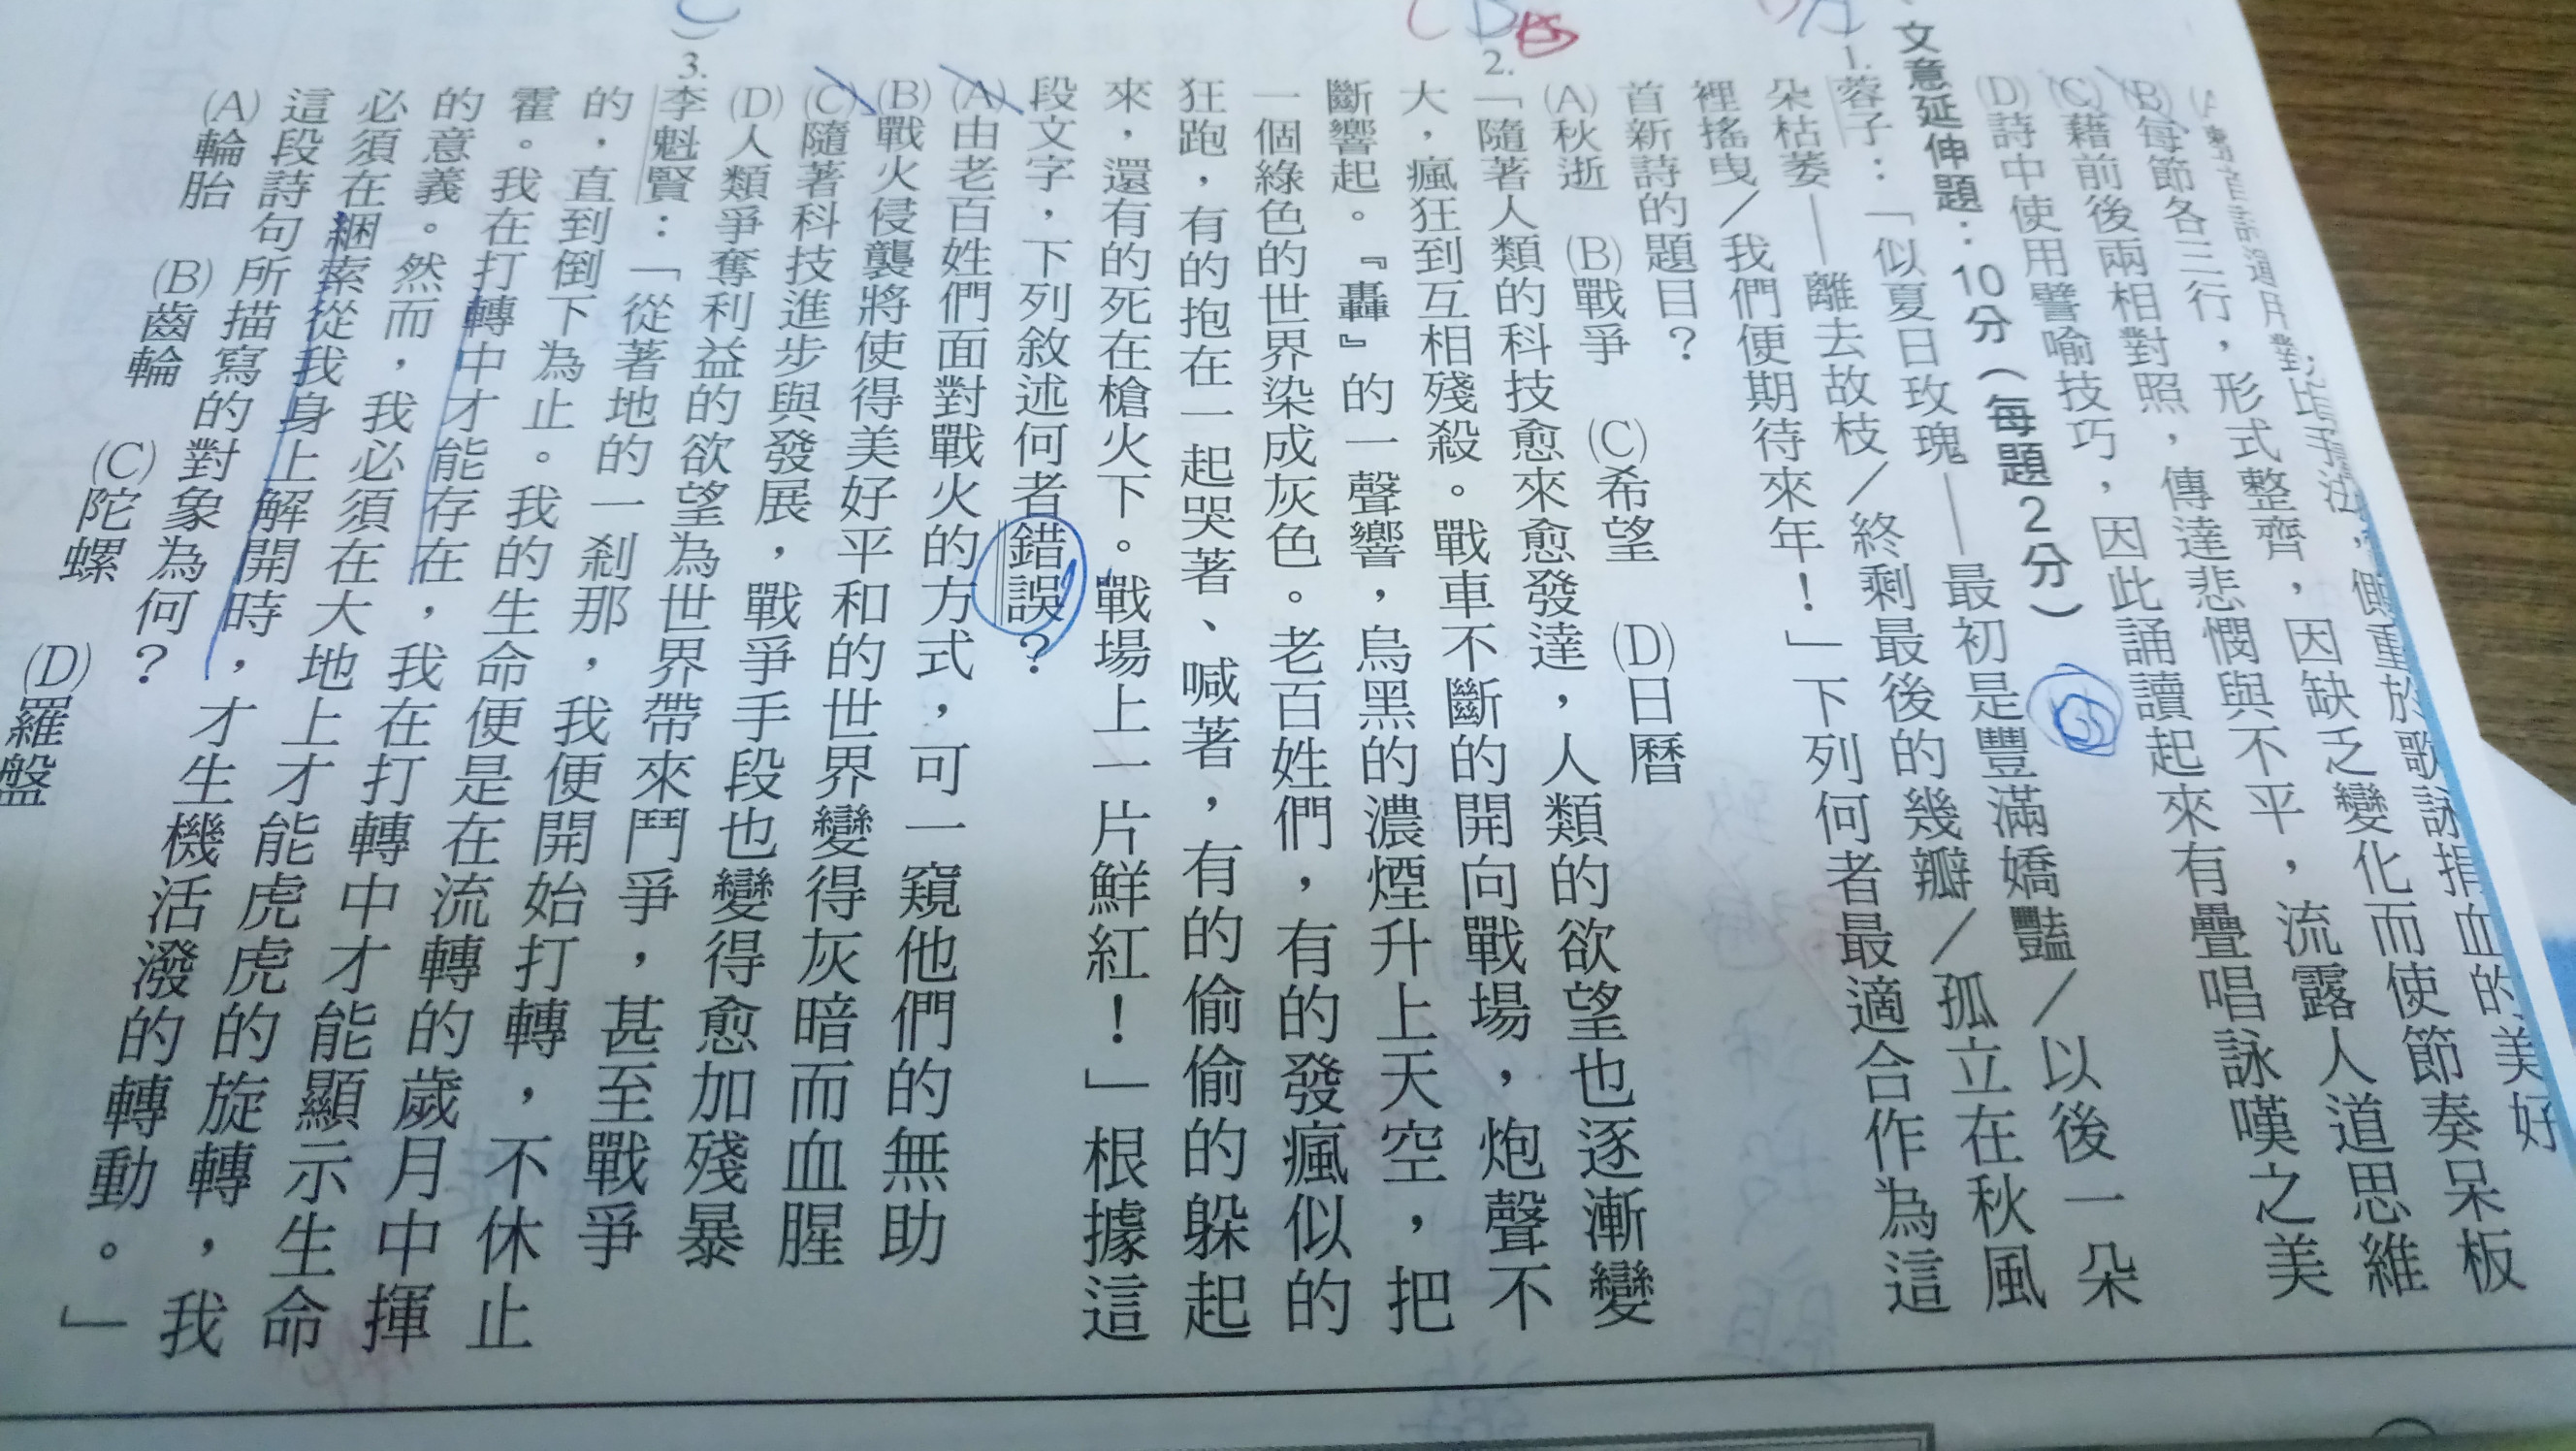 側重於歌詠捐血的美好
(B)每節各三行，形式整齊，因缺乏變化而使節奏呆板
(C)藉前後兩相對照，傳達悲憫與不平，流露人道思維
(D)詩中使用譬喻技巧，因此誦讀起來有疊唱詠嘆之美
文意延伸題：10分（每題2分）
1.蓉子：「似夏日玫瑰──最初是豐滿嬌豔／以後一朵
朵枯萎──離去故枝／終剩最後的幾瓣／孤立在秋風
裡搖曳／我們便期待來年！」下列何者最適合作為這
首新詩的題目？
(A)秋逝 (B)戰爭 (C)希望 (D)日曆
2.「隨著人類的科技愈來愈發達，人類的欲望也逐漸變
大，瘋狂到互相殘殺。戰車不斷的開向戰場，炮聲不
斷響起。『轟』的一聲響，烏黑的濃煙升上天空，把
一個綠色的世界染成灰色。老百姓們，有的發瘋似的
狂跑，有的抱在一起哭著、喊著，有的偷偷的躲起
來，還有的死在槍火下。戰場上一片鮮紅！」根據這
段文字，下列敘述何者錯誤？
(A)由老百姓們面對戰火的方式，可一窺他們的無助
(B)戰火侵襲將使得美好平和的世界變得灰暗而血腥
(C)隨著科技進步與發展，戰爭手段也變得愈加殘暴
(D)人類爭奪利益的欲望為世界帶來鬥爭，甚至戰爭
3.李魁賢：「從著地的一剎那，我便開始打轉，不休止
的，直到倒下為止。我的生命便是在流轉的歲月中揮
霍。我在打轉中才能存在，我在打轉中才能顯示生命
的意義。然而，我必須在大地上才能虎虎的旋轉，我
必須在綑索從我身上解開時，才生機活潑的轉動。」
這段詩句所描寫的對象為何？
(A)輪胎 (B)齒輪 (C)陀螺 (D)羅盤